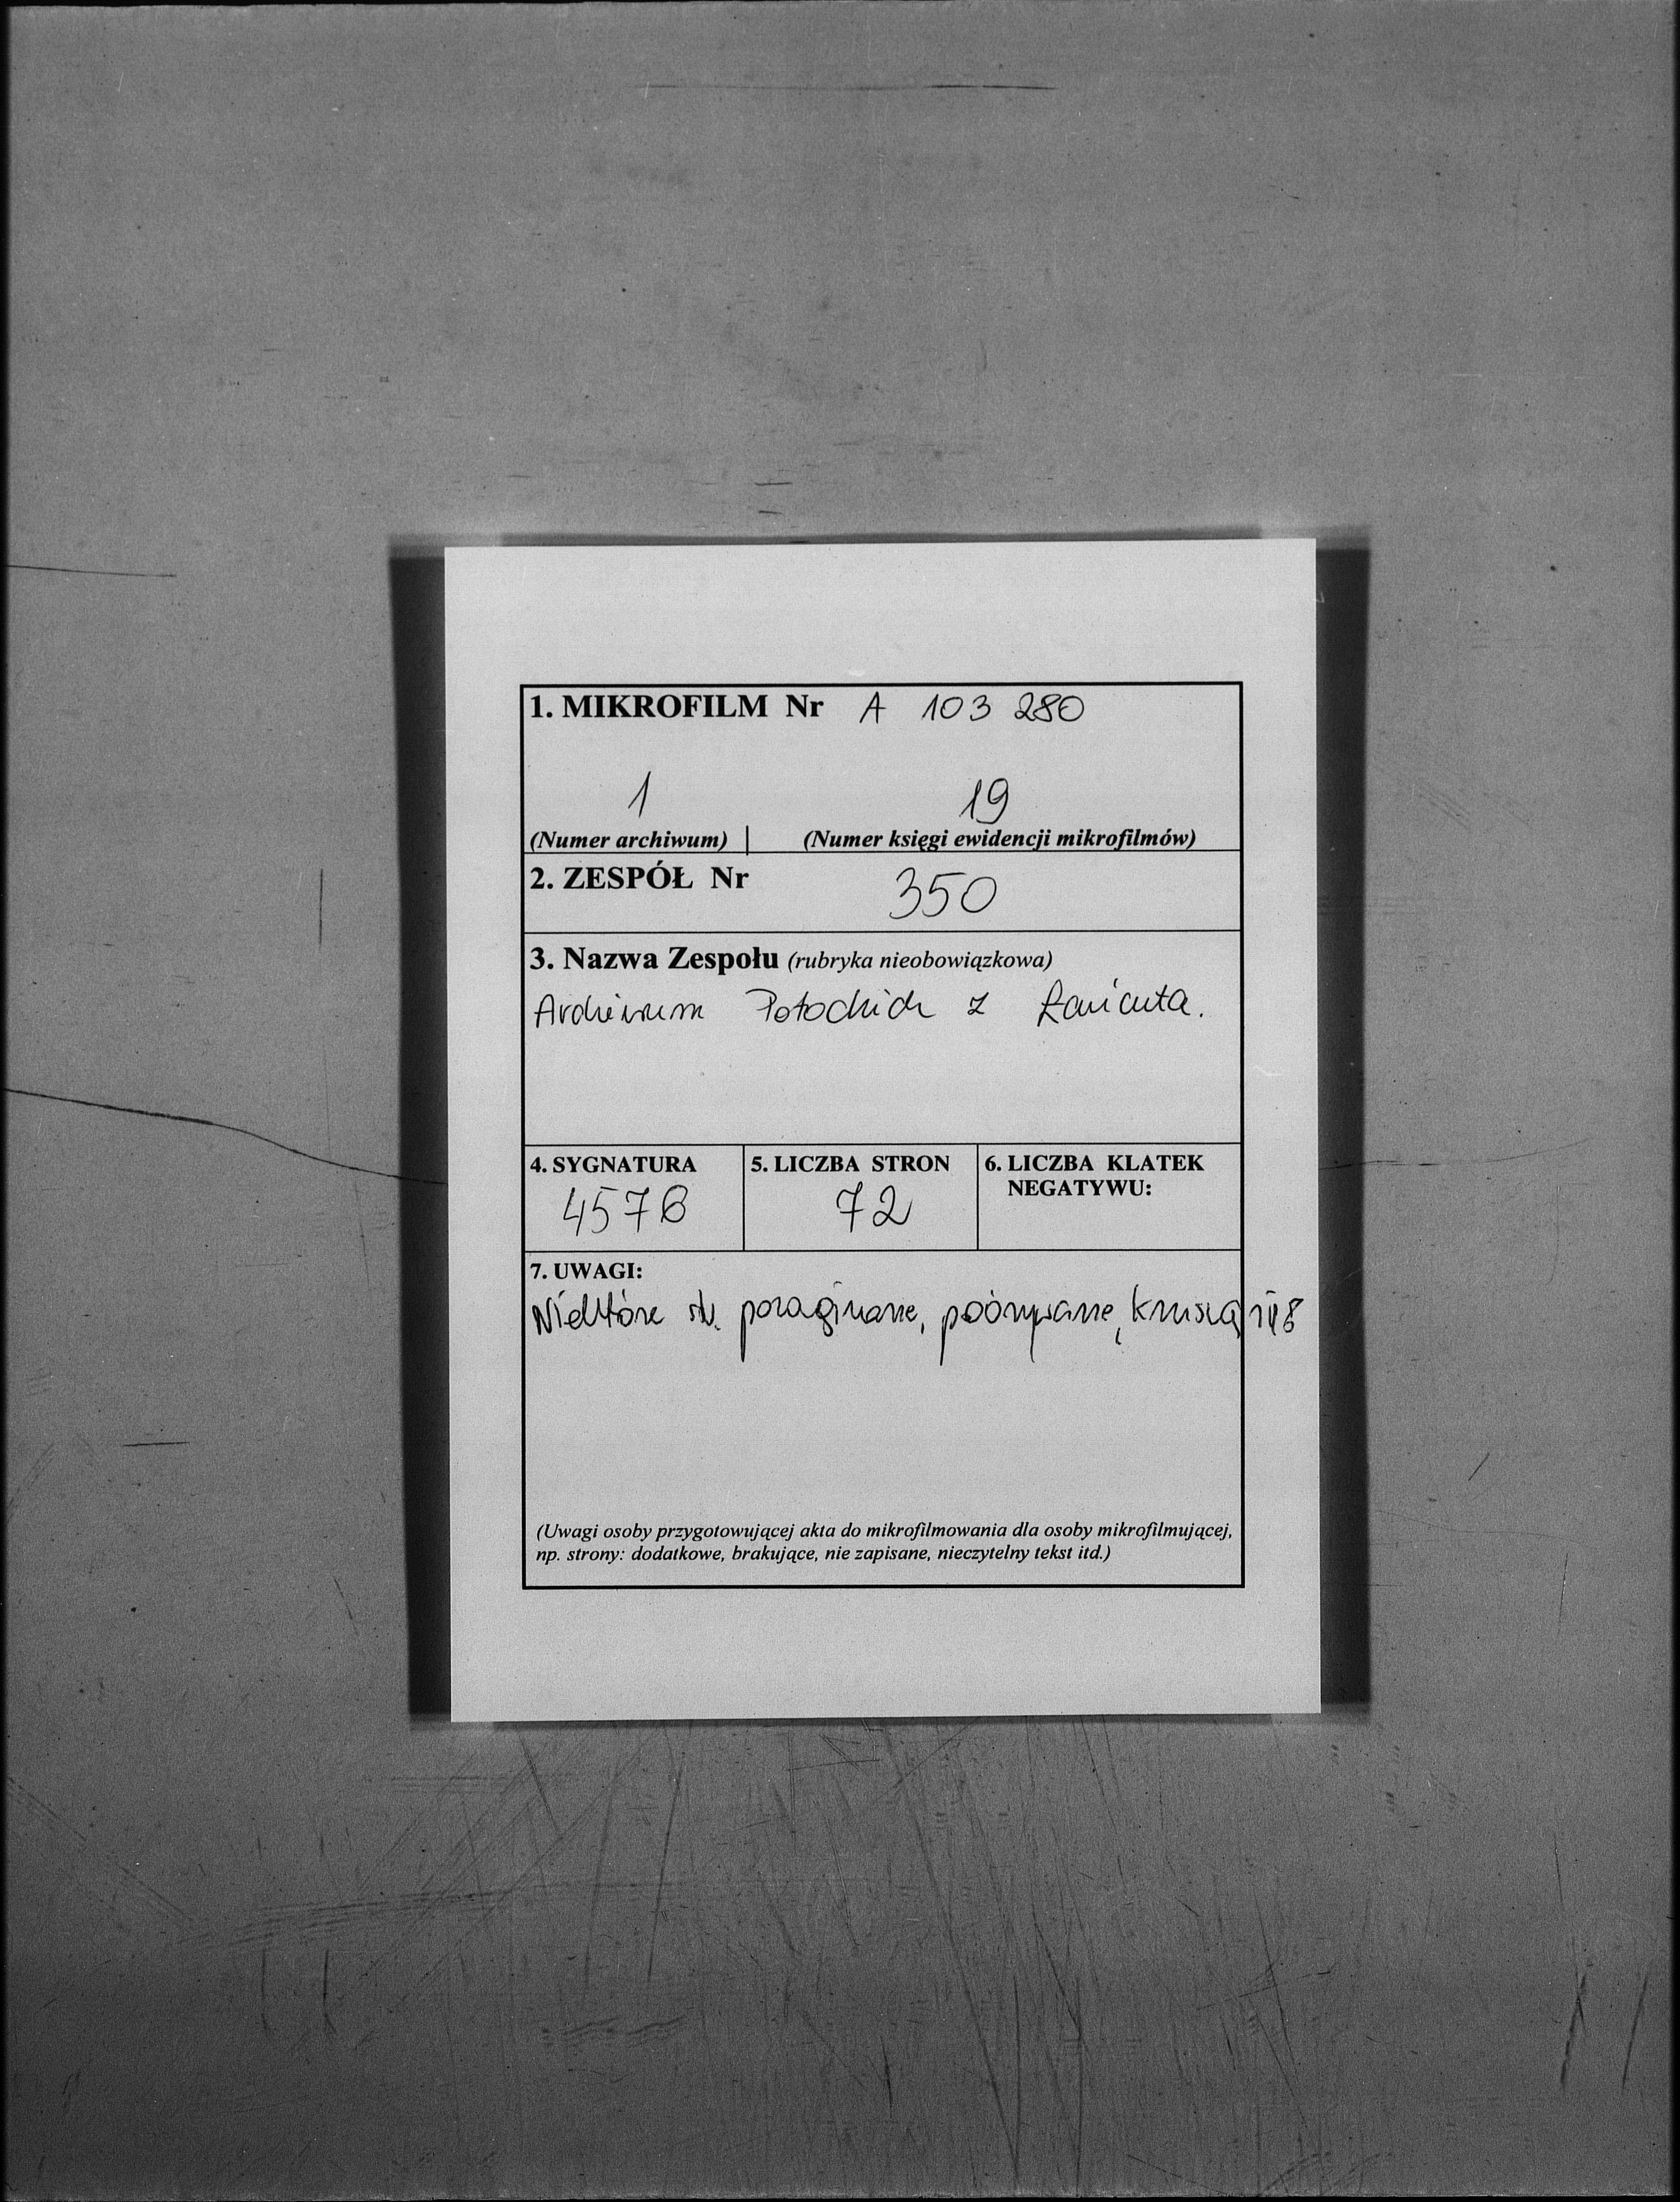 1. MIKROFILM Nr A 103 280
1 19
(Numer archiwum) (Numer księgi ewidencji mikrofilmów)
2. ZESPÓŁ Nr 350
3. Nazwa Zespołu (rubryka nieobowiązkowa)
Archiwum Potockich z Łańcuta.
4. SYGNATURA 5. LICZBA STRON 6. LICZBA KLATEK
NEGATYWU:
72
7. UWAGI:
Niektóre str. pozaginane, poobrywane, kruszą się
(Uwagi osoby przygotowującej akta do mikrofilmowania dla osoby mikrofilmującej,
np. strony: dodatkowe, brakujące, nie zapisane, nieczytelny tekst itd.)